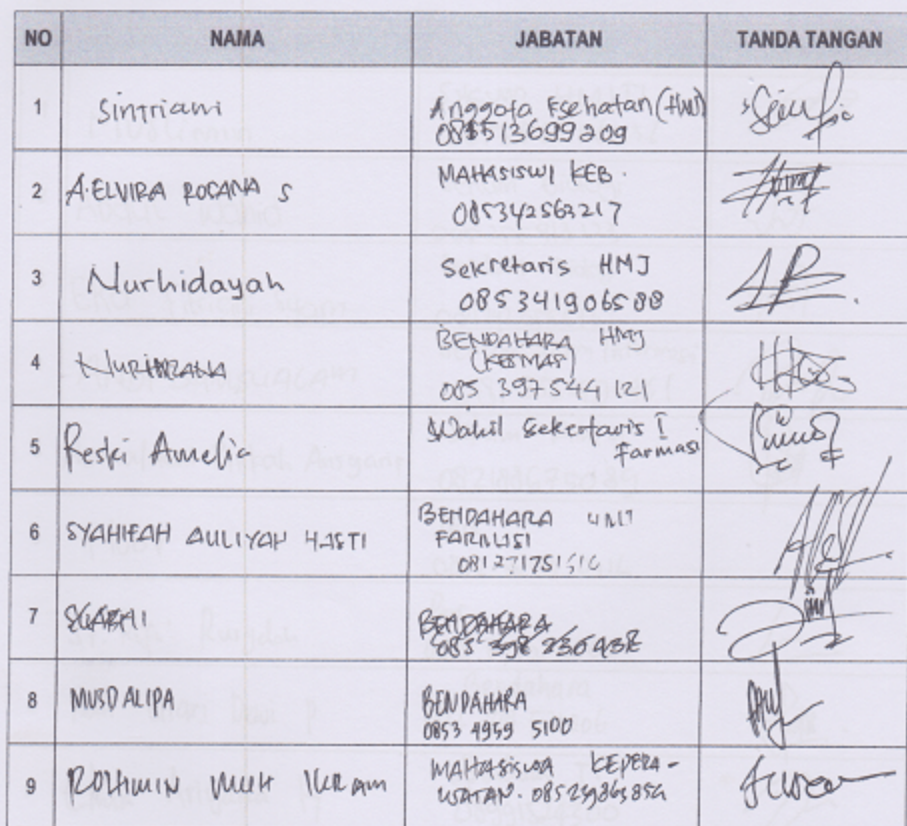 NO NAMA JABATAN TANDA TANGAN
1 Sintriani Anggota Esehatan (HMJ)
085513699209
2 A.ELVIRA ROSANA S MAHASISWI KEB.
085342563217
3 Nurhidayah Sekretaris HMJ
085341906588
4 NURHIRANA BENDAHARA HMJ
(KESMAS)
085 397544 121
5 Reski Amelia Wakil Sekertaris I
Farmasi
6 SYAHIFAH AULIYAH HASTI BENDAHARA UNIT
FARMASI
7 BENDAHARA
8 MUSDALIPA BENDAHARA
0853 4959 5100
9 ROHIMIN MUH IKRAM MAHASISWA KEPERA-
WATAN.